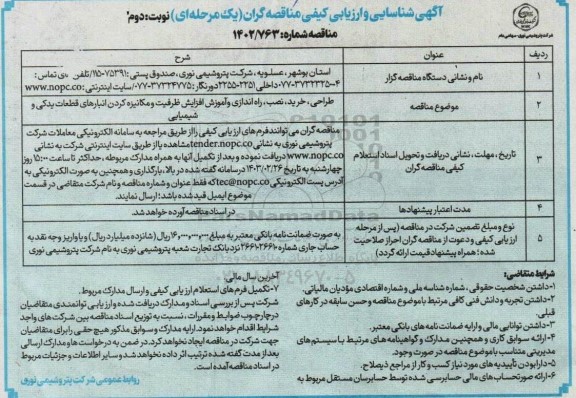 آگهی شناسایی و ارزیابی کیفی مناقصه گران (یک مرحله ای) نوبت: دوم
مناقصه شماره: ۱۴۰۲/۷۶۳
شرکت پتروشیمی نوری - سهامی عام
ردیف عنوان شرح
۱ نام و نشانی دستگاه مناقصه گزار
استان بوشهر، عسلویه، شرکت پتروشیمی نوری، صندوق پستی: ۷۵۳۹۱-۱۱۵/تلفن
داخلی ۲۳۵۱-۲۳۵۵ دورنگار: ۳۷۳۲۴۷۷۵-۰۷۷/سایت اینترنتی: www.nopc.co
۲ موضوع مناقصه
طراحی، خرید، نصب، راه اندازی و آموزش افزایش ظرفیت و مکانیزه کردن انبارهای قطعات یدکی و
شیمیایی
۳ تاریخ، مهلت، نشانی دریافت و تحویل اسناد استعلام
کیفی مناقصه گران
مناقصه گران می توانند فرم های ارزیابی کیفی را از طریق مراجعه به سامانه الکترونیکی معاملات شرکت
پتروشیمی نوری به نشانی tender.nopc.co مشاهده یا از طریق سایت اینترنتی شرکت به نشانی
www.nopc.co دریافت نموده و بعد از تکمیل آنها به همراه مدارک مربوطه، حداکثر تا ساعت ۱۵:۰۰ روز
چهارشنبه به تاریخ ۱۴۰۳/۰۲/۲۶ در سامانه گفته شده در بالا، بارگذاری و همچنین به صورت الکترونیکی به
آدرس پست الکترونیکی tec@nopc.co که فقط عنوان و شماره مناقصه و نام شرکت متقاضی در قسمت
موضوع ایمیل قید شده باشد؛ ارسال نمایند.
۴ مدت اعتبار پیشنهادها
در اسناد مناقصه آورده خواهد شد.
۵ نوع و مبلغ تضمین شرکت در مناقصه (پس از مرحله
ارزیابی کیفی و دعوت از مناقصه گران احراز صلاحیت
شده؛ همراه پیشنهاد قیمت ارائه گردد)
به صورت ضمانت نامه بانکی معتبر به مبلغ ۱۶,۰۰۰,۰۰۰,۰۰۰ ریال (شانزده میلیارد ریال) و یا واریز وجه نقد به
حساب جاری شماره نزد بانک تجارت شعبه پتروشیمی نوری به نام شرکت پتروشیمی نوری
شرایط متقاضی:
۱-داشتن شخصیت حقوقی، شماره شناسه ملی و شماره اقتصادی مؤدیان مالیاتی.
۲-داشتن تجربه و دانش فنی کافی مرتبط با موضوع مناقصه و حسن سابقه در کارهای
قبلی.
۳-داشتن توانایی مالی و ارایه ضمانت نامه های بانکی معتبر.
۴-ارائه سوابق کاری و همچنین مدارک و گواهینامه های مرتبط با سیستم های
مدیریتی متناسب با موضوع مناقصه در صورت وجود.
۵-دارا بودن تأییدیه های مورد نیاز کسب و کار از مراجع ذیصلاح.
۶-ارائه صورتحساب های مالی حسابرسی شده توسط حسابرسان مستقل مربوط به
آخرین سال مالی.
۷-تکمیل فرم های استعلام ارزیابی کیفی و ارسال مدارک مربوط.
شرکت پس از بررسی اسناد و مدارک دریافت شده و ارزیابی توانمندی متقاضیان
در چارچوب ضوابط و مقررات، نسبت به توزیع اسناد مناقصه بین شرکت های واجد
شرایط اقدام خواهد نمود. ارایه مدارک و سوابق مذکور هیچ حقی را برای متقاضیان
جهت شرکت در مناقصه ایجاد نخواهد کرد. در ضمن به درخواست ها و مدارک ارسالی
بعد از مدت گفته شده ترتیب اثر داده نخواهد شد و سایر اطلاعات و جزئیات مربوط
در اسناد مناقصه آمده است.
روابط عمومی شرکت پتروشیمی نوری